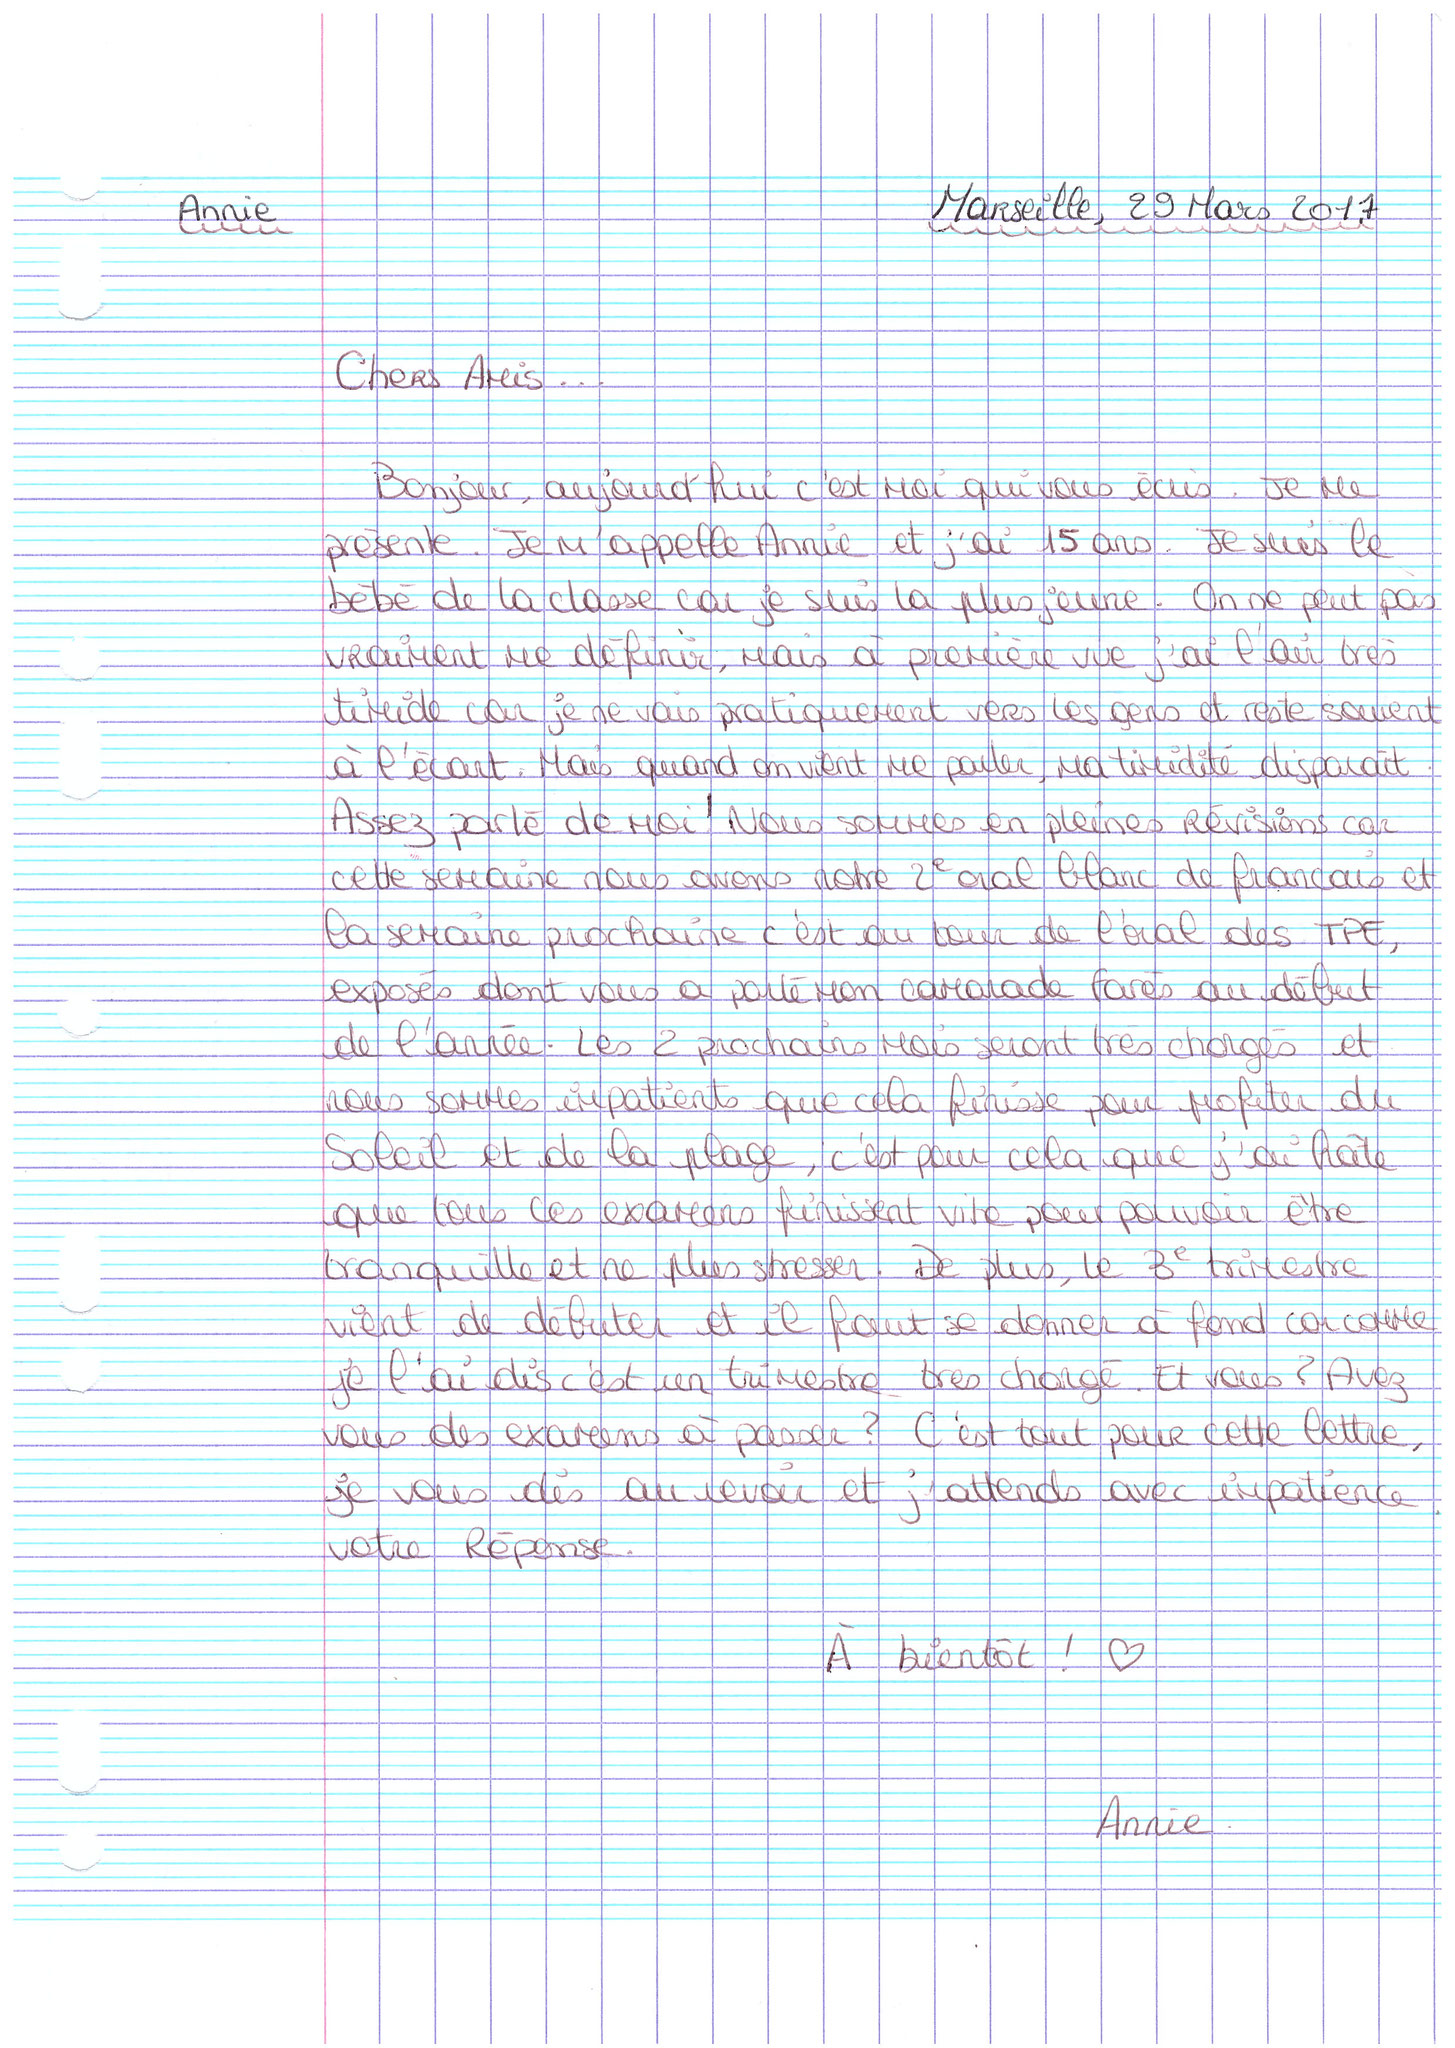 Annie
Marseille, 29 Mars 2017
Chers Amis...
Bonjour, aujourd'hui c'est moi qui vous écris. Je me
présente. Je m'appelle Annie et j'ai 15 ans. Je suis le
bébé de la classe car je suis la plus jeune. On ne peut pas
vraiment me définir, mais à première vue j'ai l'air très
timide car je ne vais pratiquement vers les gens et reste souvent
à l'écart. Mais quand on vient me parler, ma timidité disparaît.
Assez parlé de moi ! Nous sommes en pleines révisions car
cette semaine nous avons notre 2e oral blanc de français et
la semaine prochaine c'est au tour de l'oral des TPE,
exposés dont vous a parlé mon camarade farès au début
de l'année. Les 2 prochains mois seront très chargés et
nous sommes impatients que cela finisse pour profiter du
Soleil et de la plage, c'est pour cela que j'ai hâte
que tous ces examens finissent vite pour pouvoir être
tranquille et ne plus stresser. De plus, le 3e trimestre
vient de débuter et il faut se donner à fond car comme
je l'ai dis c'est un trimestre tres chargé. Et vous ? Avez
vous des examens à passer ? C'est tout pour cette lettre,
je vous dis au revoir et j'attends avec impatience
votre Réponse.
À bientôt ! ♡
Annie.